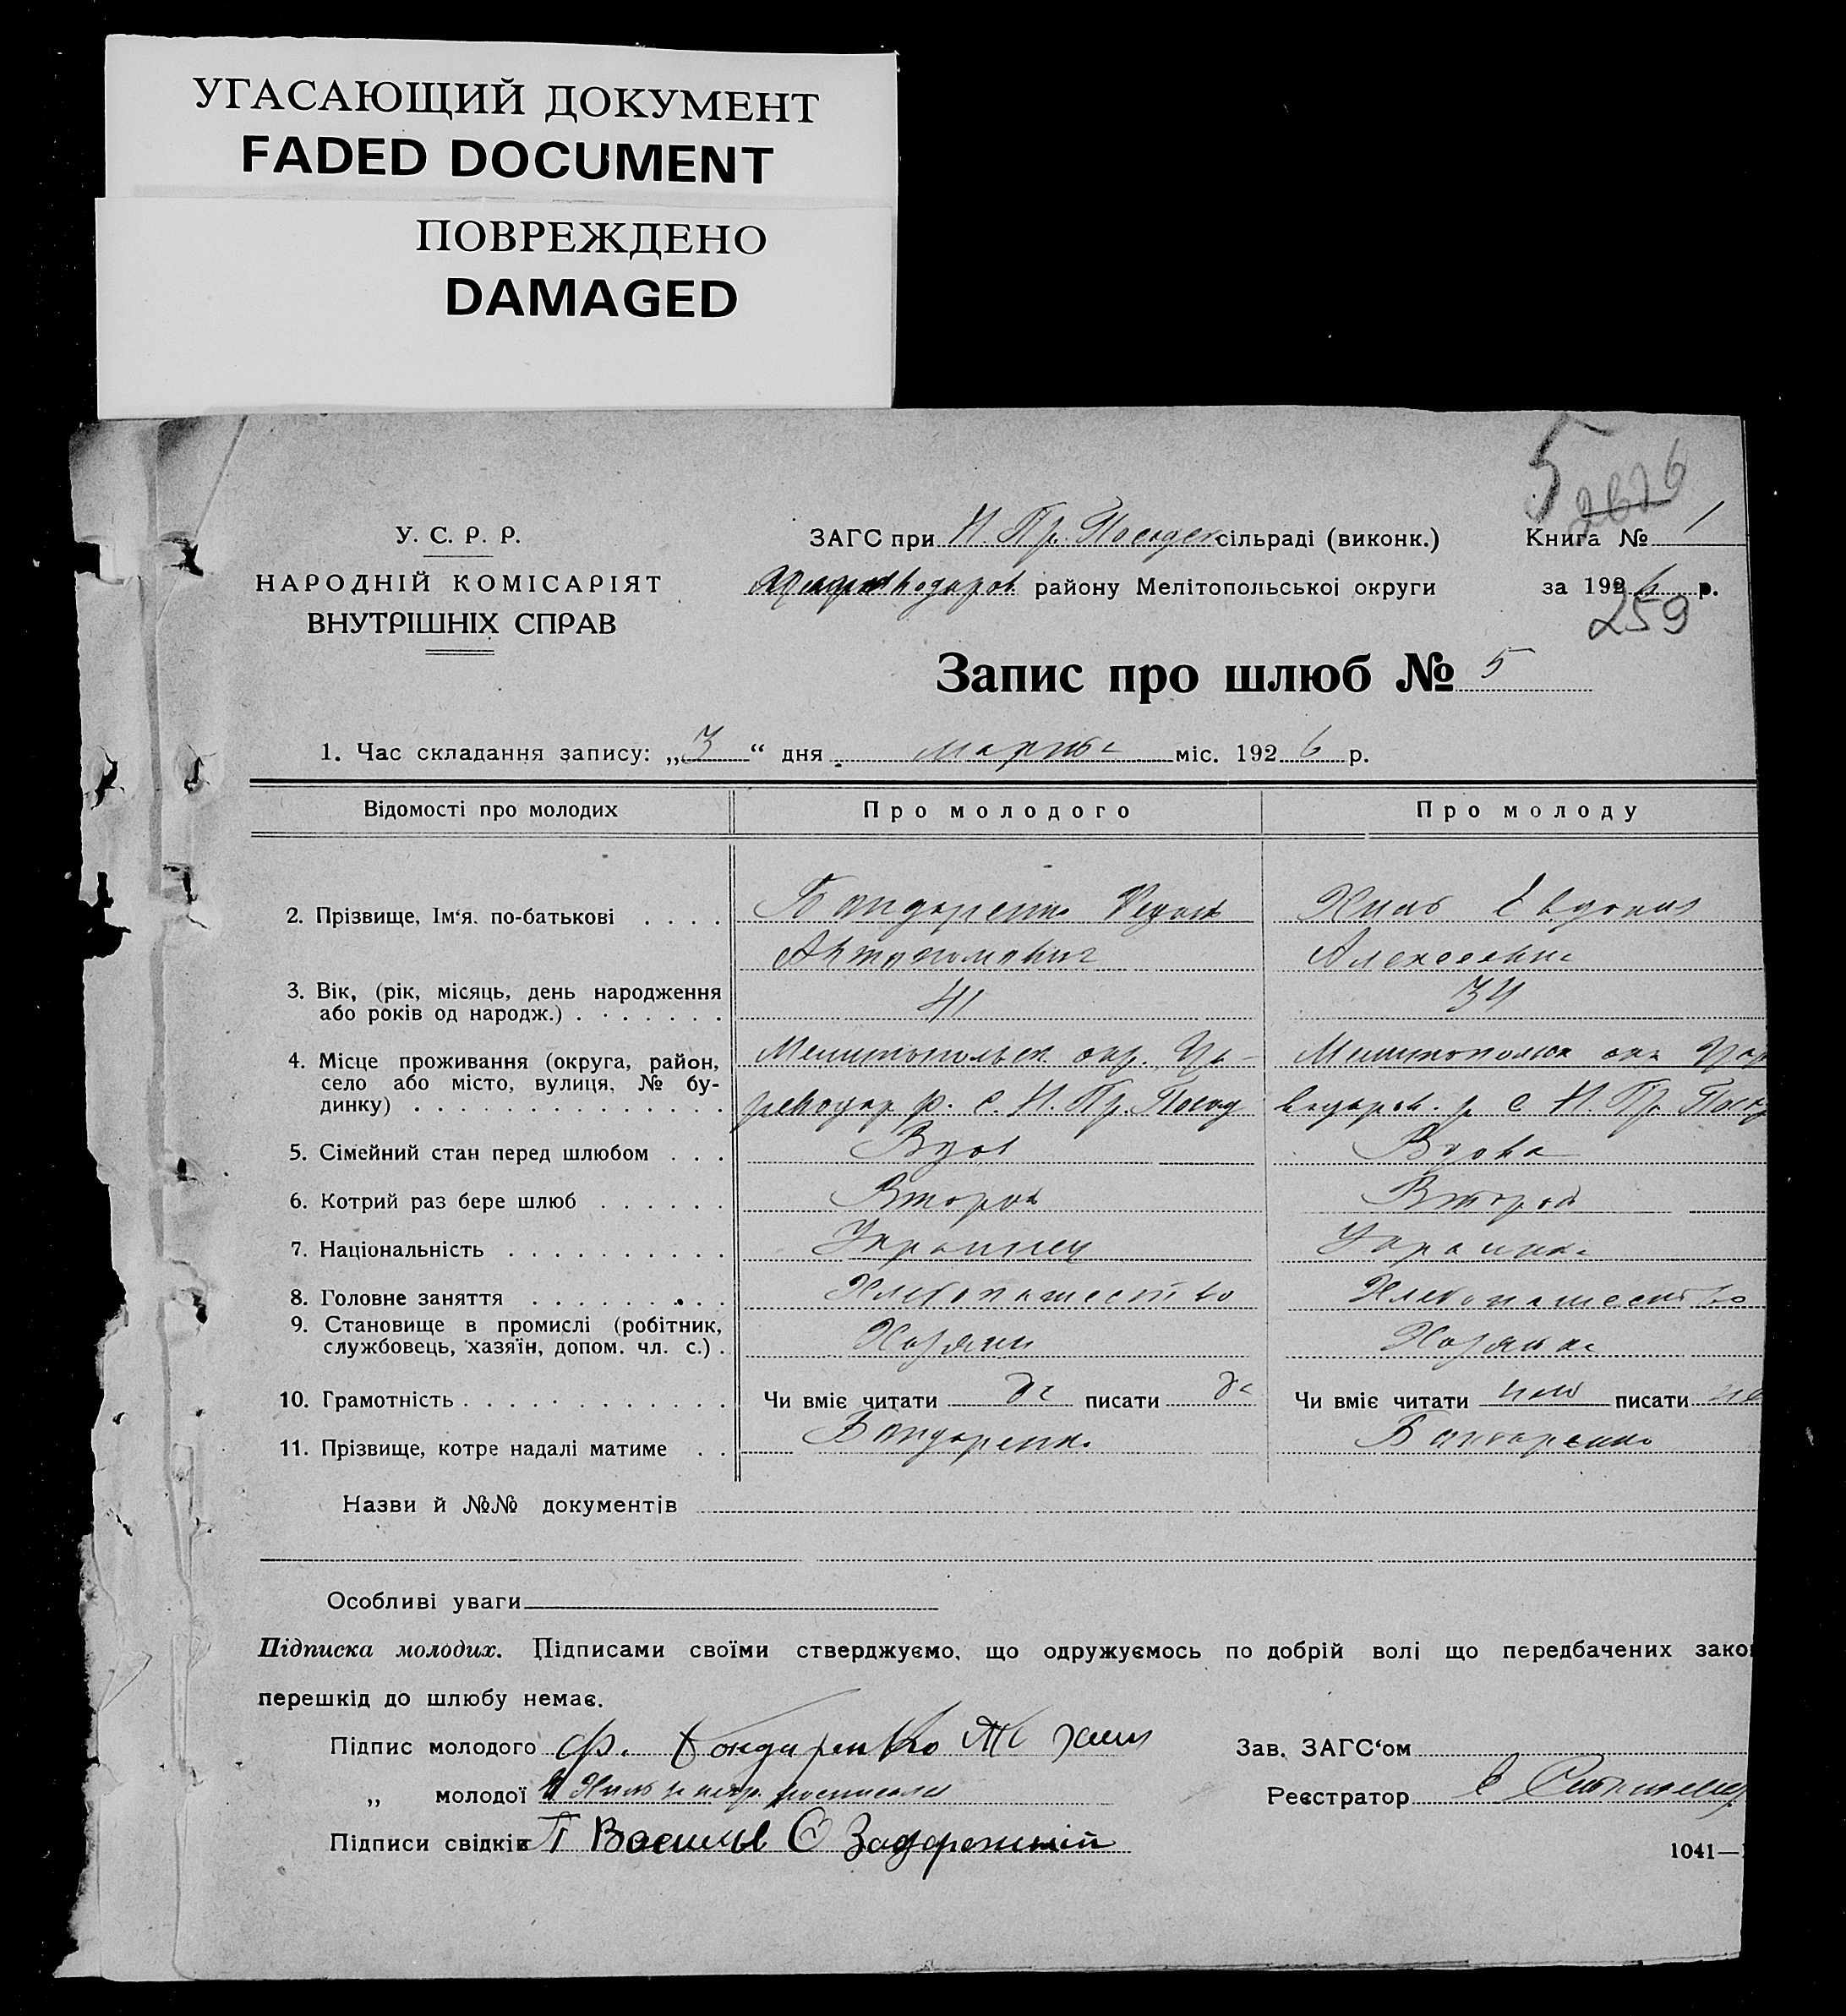 УГАСАЮЩИЙ ДОКУМЕНТ
FADED DOCUMENT
ПОВРЕЖДЕНО
DAMAGED
5
2626
У. С. Р. Р.
НАРОДНІЙ КОМІСАРІЯТ
ВНУТРІШНІХ СПРАВ
ЗАГС при Н. Пр. сільраді (виконк.)
району Мелітопольської округи
Книга № 1
за 1926 р.
259
Запис про шлюб № 5
1. Час складання запису: „3“ дня марта міс. 1926 р.
Відомості про молодих Про молодого Про молоду
2. Прізвище, Ім‘я. по-батькові Бондаренко Федот Хиль Евдокия
Автономович Алексеевна
3. Вік, (рік, місяць, день народження
або років од народж.) 41 34
4. Місце проживання (округа, район,
село або місто, вулиця, № бу-
динку)
Мелитопольск окр. Ца- Мелитопольск окр Цар
реводар р. с. Н. Пр. Посад водаров. р с Н. Пр Посад
5. Сімейний стан перед шлюбом Вдов Вдова
6. Котрий раз бере шлюб Второй Второй
7. Національність Украинец Украинка
8. Головне заняття Хлебопашество Хлебопашество
9. Становище в промислі (робітник,
службовець, хазяїн, допом. чл. с.) Хозяин Хозяйка
10. Грамотність Чи вміє читати да писати да Чи вміє читати нет писати не
11. Прізвище, котре надалі матиме Бондаренко Бондаренко
Назви й №№ документів
Особливі уваги
Підписка молодих. Підписами своїми стверджуємо, що одружуємось по добрій волі що передбачених зако
перешкід до шлюбу немає.
Підпис молодого Ф. Бондаренко
Зав. ЗАГС‘ом
„ молодої Хиль
Реєстратор
Підписи свідків Задорожний
1041—